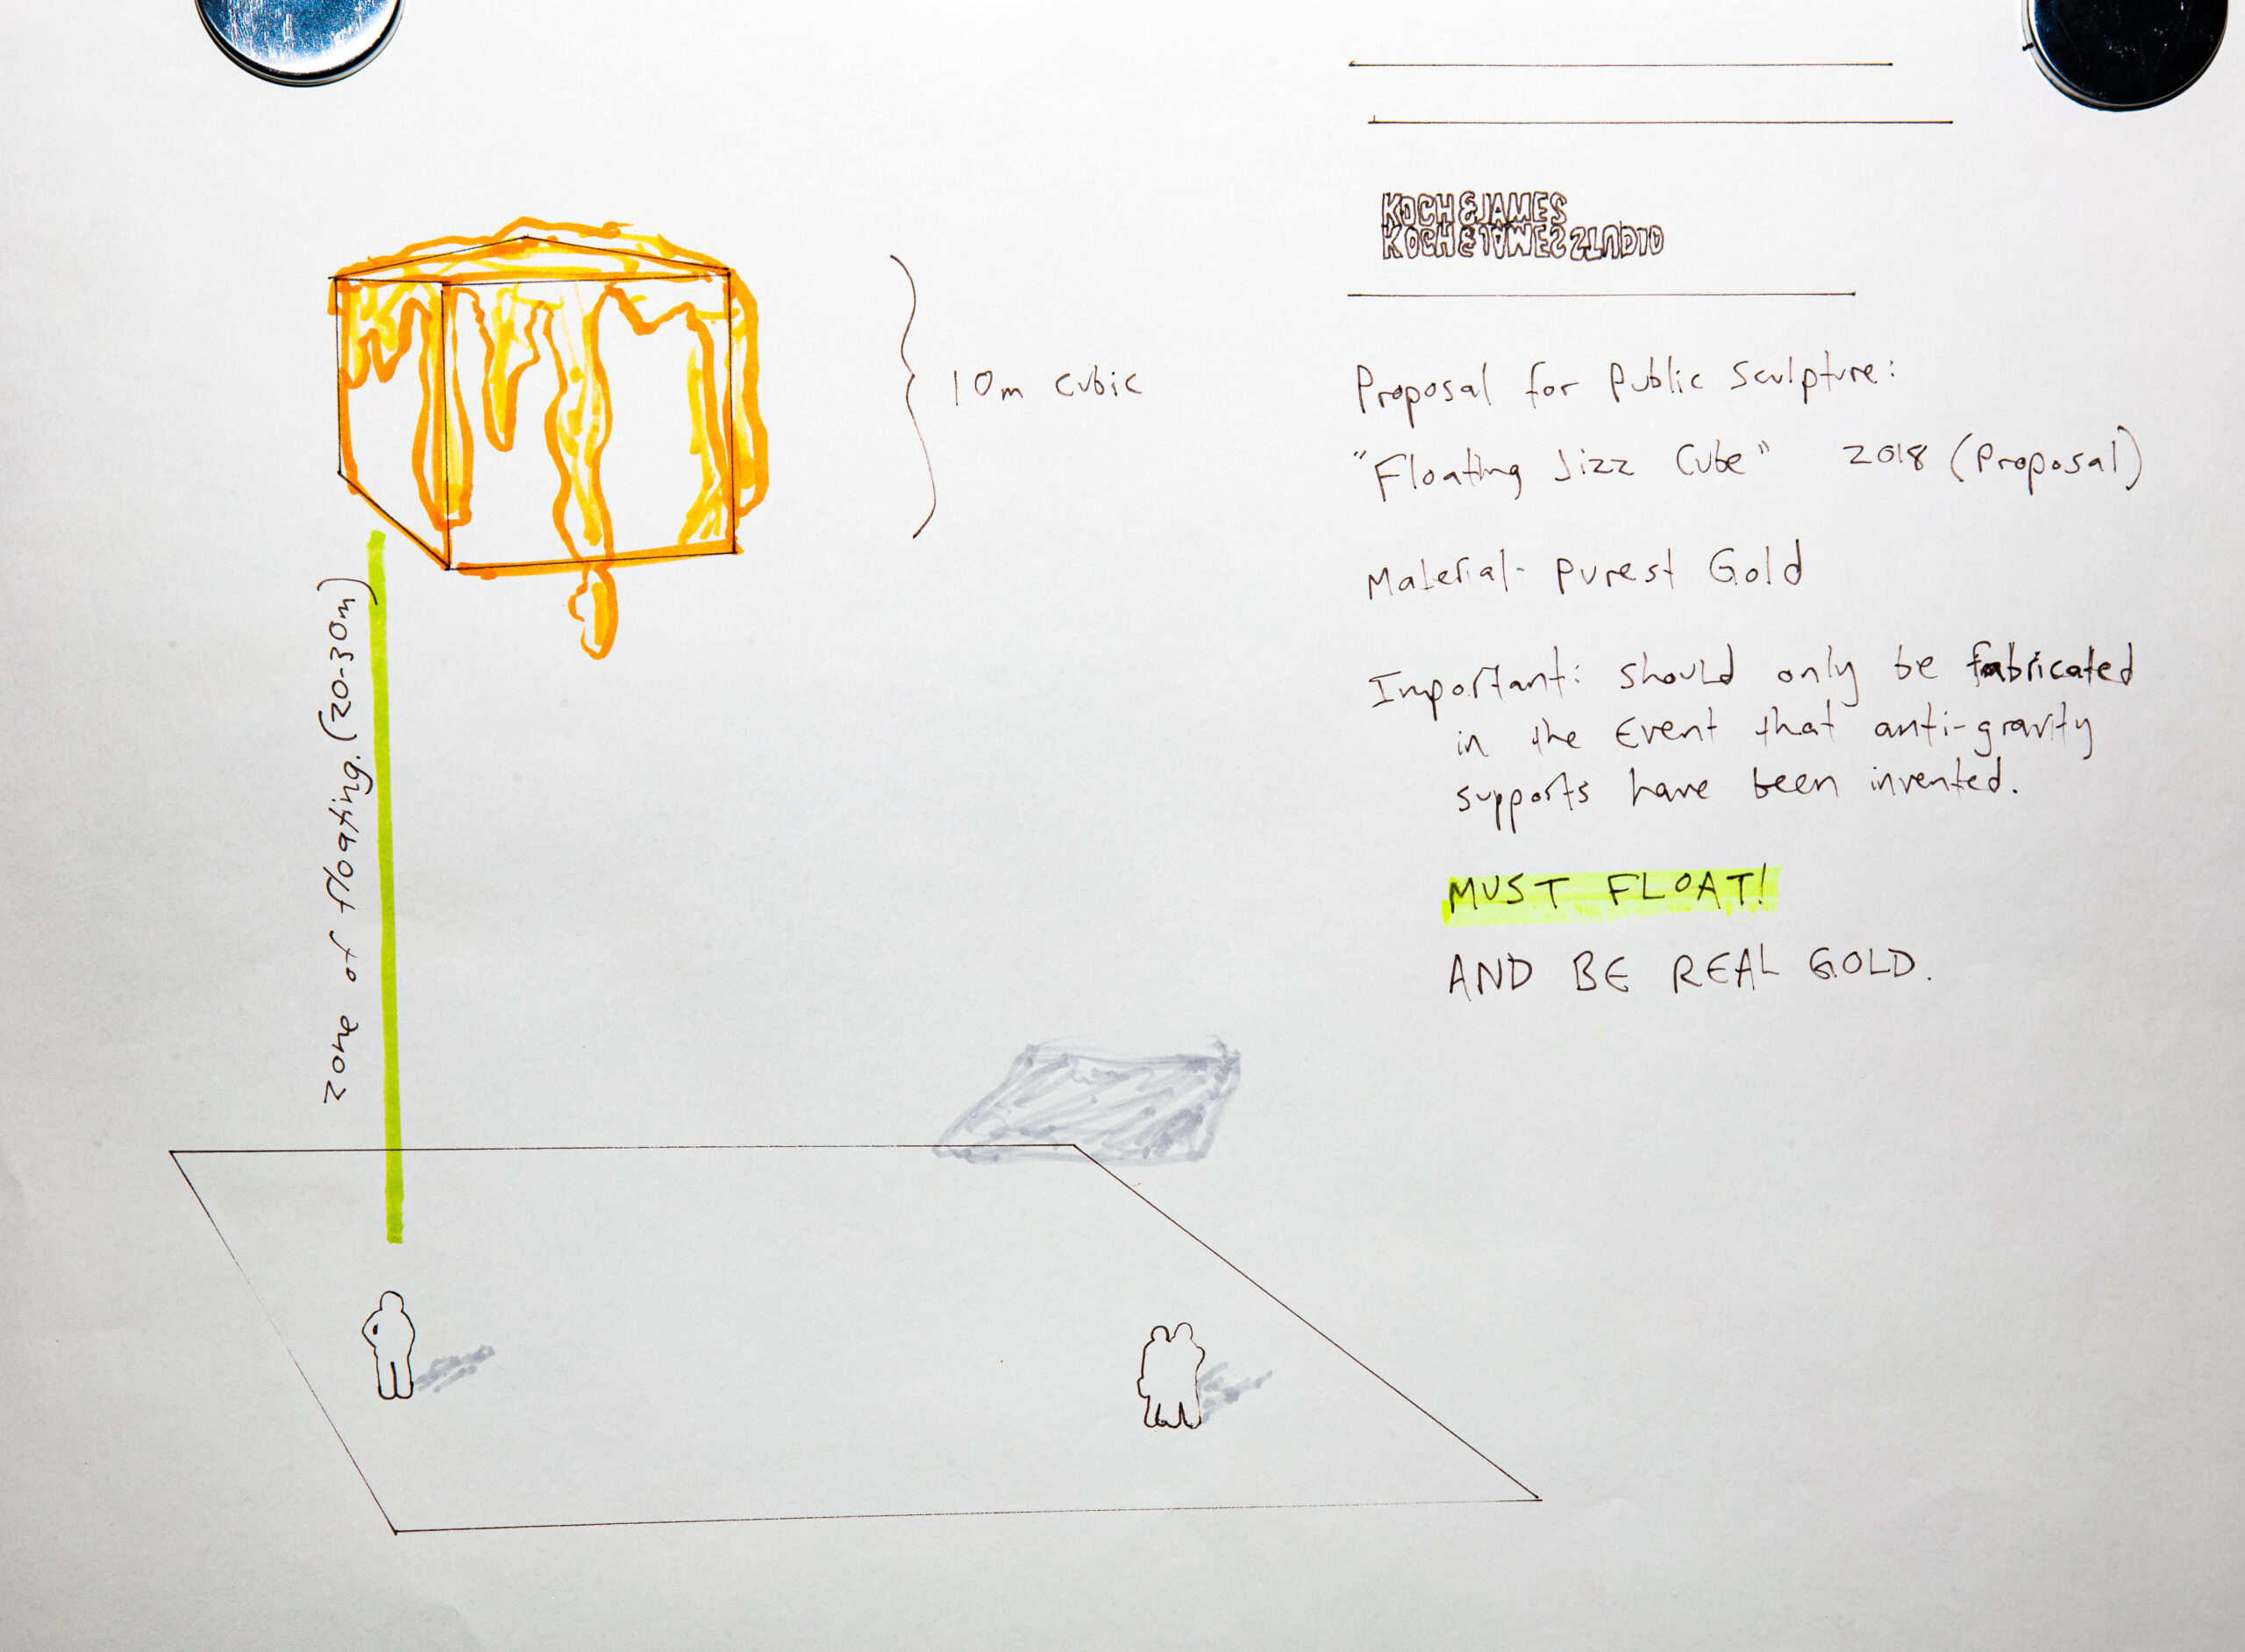 KOCH & JAMES
KOCH & JAMES STUDIO
Proposal for Public Sculpture:
"Floating Jizz Cube" 2018 (Proposal)
Material- Purest Gold
Important: should only be fabricated
in the Event that anti-gravity
supports have been invented.
MUST FLOAT!
AND BE REAL GOLD.
10m cubic
zone of floating. (20-30m)